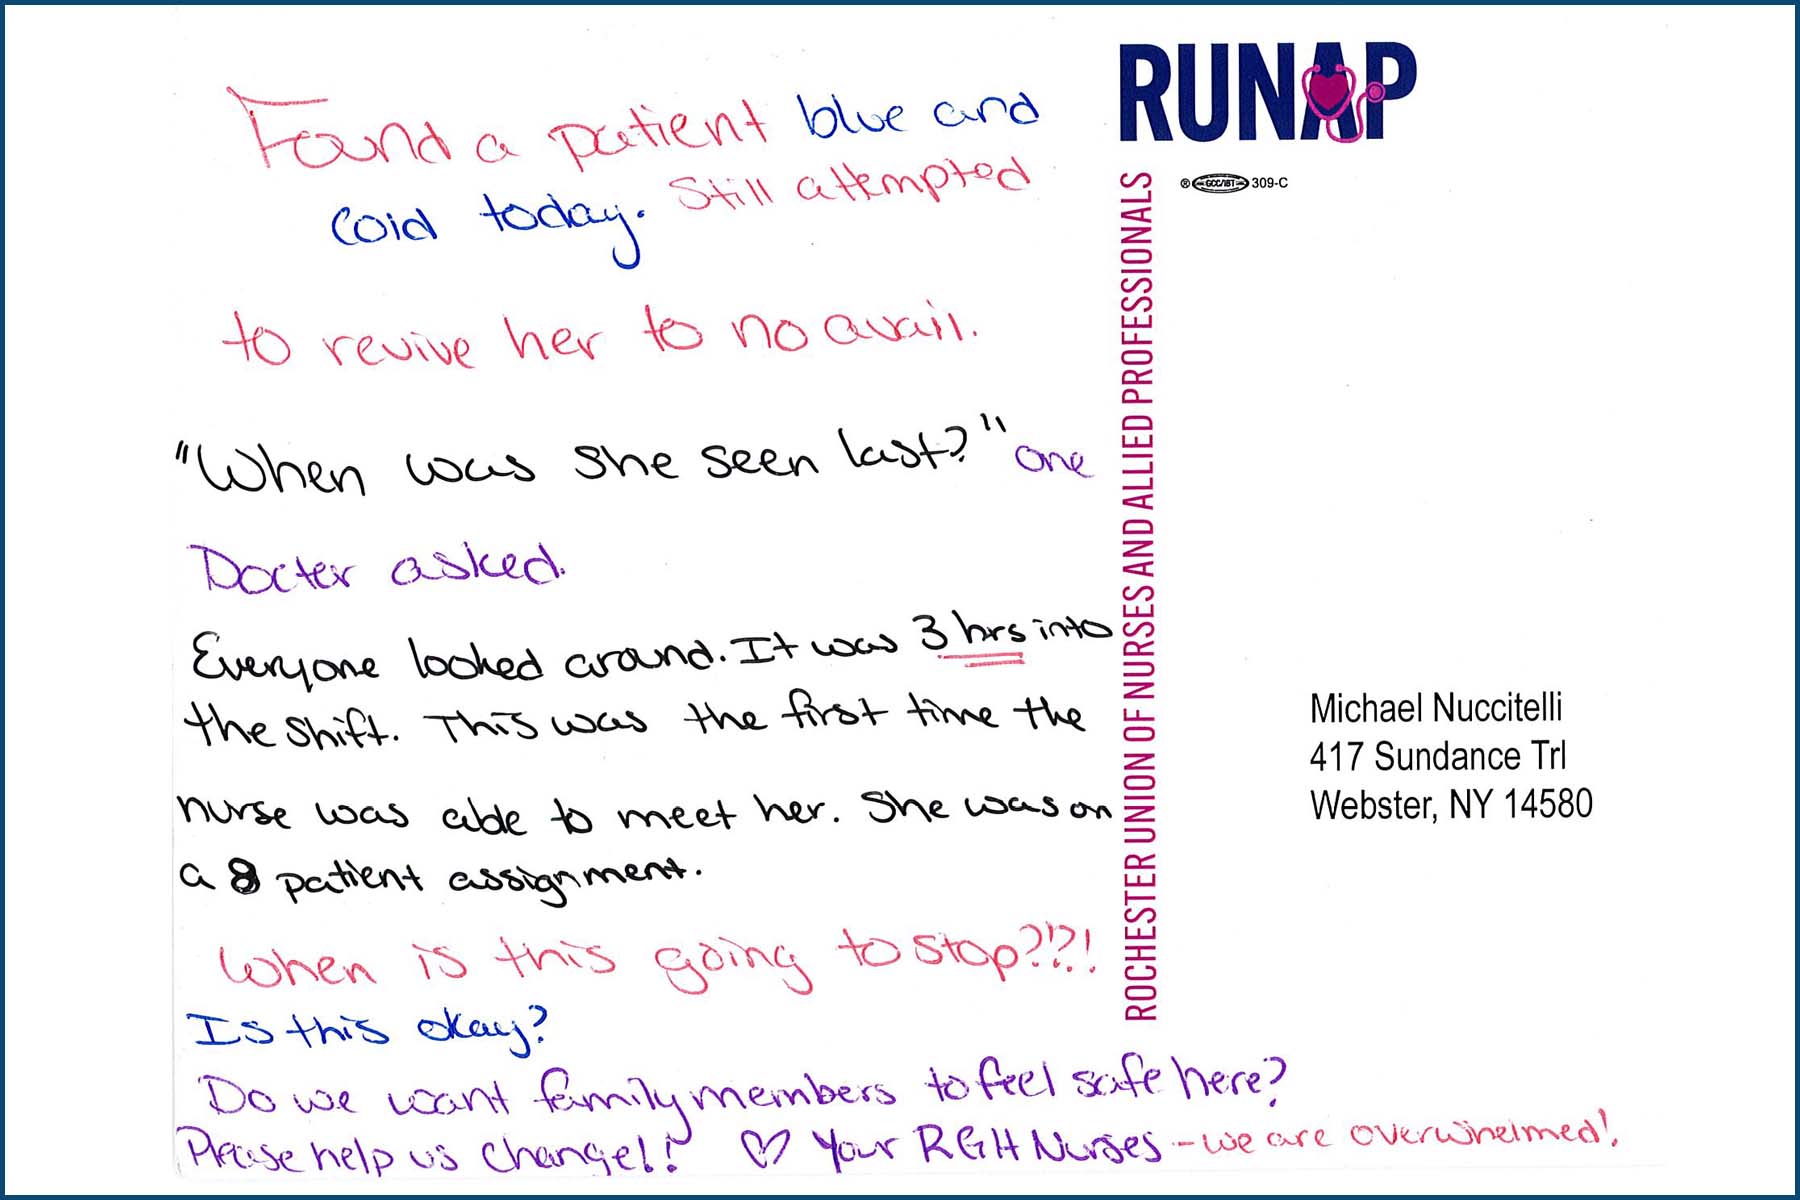 Found a patient blue and
cold today. Still attempted
to revive her to no avail.
"When was she seen last?" one
Docter asked.
Everyone looked around. It was 3 hrs into
the shift. This was the first time the
nurse was able to meet her. She was on
a 8 patient assignment.
When is this going to stop???!
Is this okay?
Do we want family members to feel safe here?
Please help us change!! ♡ Your RGH Nurses - we are overwhelmed!
RUNAP
® GCC/IBT 309-C
ROCHESTER UNION OF NURSES AND ALLIED PROFESSIONALS
Michael Nuccitelli
417 Sundance Trl
Webster, NY 14580